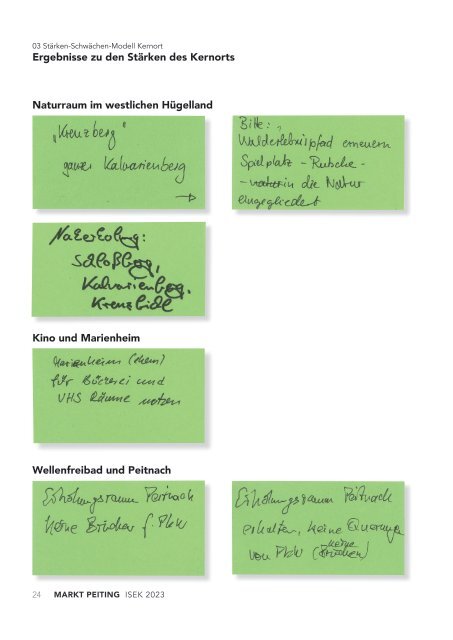 03 Stärken-Schwächen-Modell Kernort
Ergebnisse zu den Stärken des Kernorts
Naturraum im westlichen Hügelland
„Kreuzberg"
ganzer Kalvarienberg
→
Bitte:
Walderlebnispfad erneuern
Spielplatz - Rutsche -
- in die Natur
eingegliedert
Naherholung:
Schloßberg,
Kalvarienberg,
Kreuzbichl
Kino und Marienheim
Marienheim (ehem)
für Bücherei und
VHS Räume nutzen
Wellenfreibad und Peitnach
Erholungsraum Peitnach
keine Brücken f. Pkw
Erholungsraum Peitnach
erhalten, keine Querungen
von Pkw (keine Brücken)
24 MARKT PEITING ISEK 2023